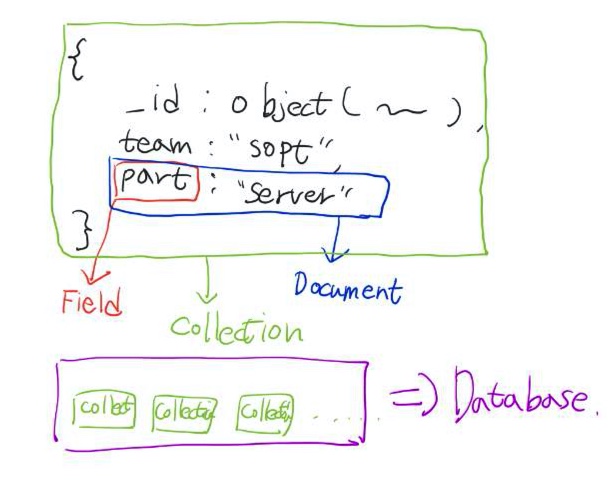 {
_id : object ( ~ ) ,
team : "sopt",
part : "Server"
}
Field
Collection
Document
collect Collection Collection ......
=> Database.